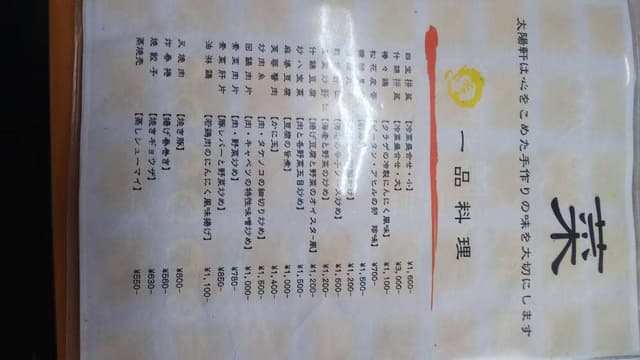 菜
太陽軒は心をこめた手作りの味を大切にします
一品料理
四宝拼盆【冷菜盛合せ・小】¥1,600-
什錦拼盆【冷菜盛合せ・大】¥3,000-
棒々鶏 ¥1,100-
【クラゲの冷製にんにく風味】
松花皮蛋【ピータン・アヒルの卵 珍味】¥700-
¥1,500-
¥1,200-
¥1,200-
【海老と野菜の炒め】
什錦豆腐【揚げ豆腐と野菜のオイスター煮】¥1,200-
炒八宝菜【肉と各野菜五目炒め】¥1,500-
麻婆豆腐【豆腐の旨煮】¥1,000-
芙蓉蟹肉【かに玉】¥1,400-
炒肉魚【肉・タケノコの細切り炒め】¥1,500-
回鍋肉片【肉・キャベツの特性味噌炒め】¥1,000-
素菜肉片【肉・野菜炒め】¥780-
素菜肝片【豚レバーと野菜炒め】¥850-
油淋鶏【若鶏肉のにんにく風味揚げ】¥1,100-
叉焼肉【焼き豚】¥800-
炸春捲【揚げ春巻き】¥560-
焼餃子【焼きギョウザ】¥630-
蒸焼売【蒸しシューマイ】¥550-